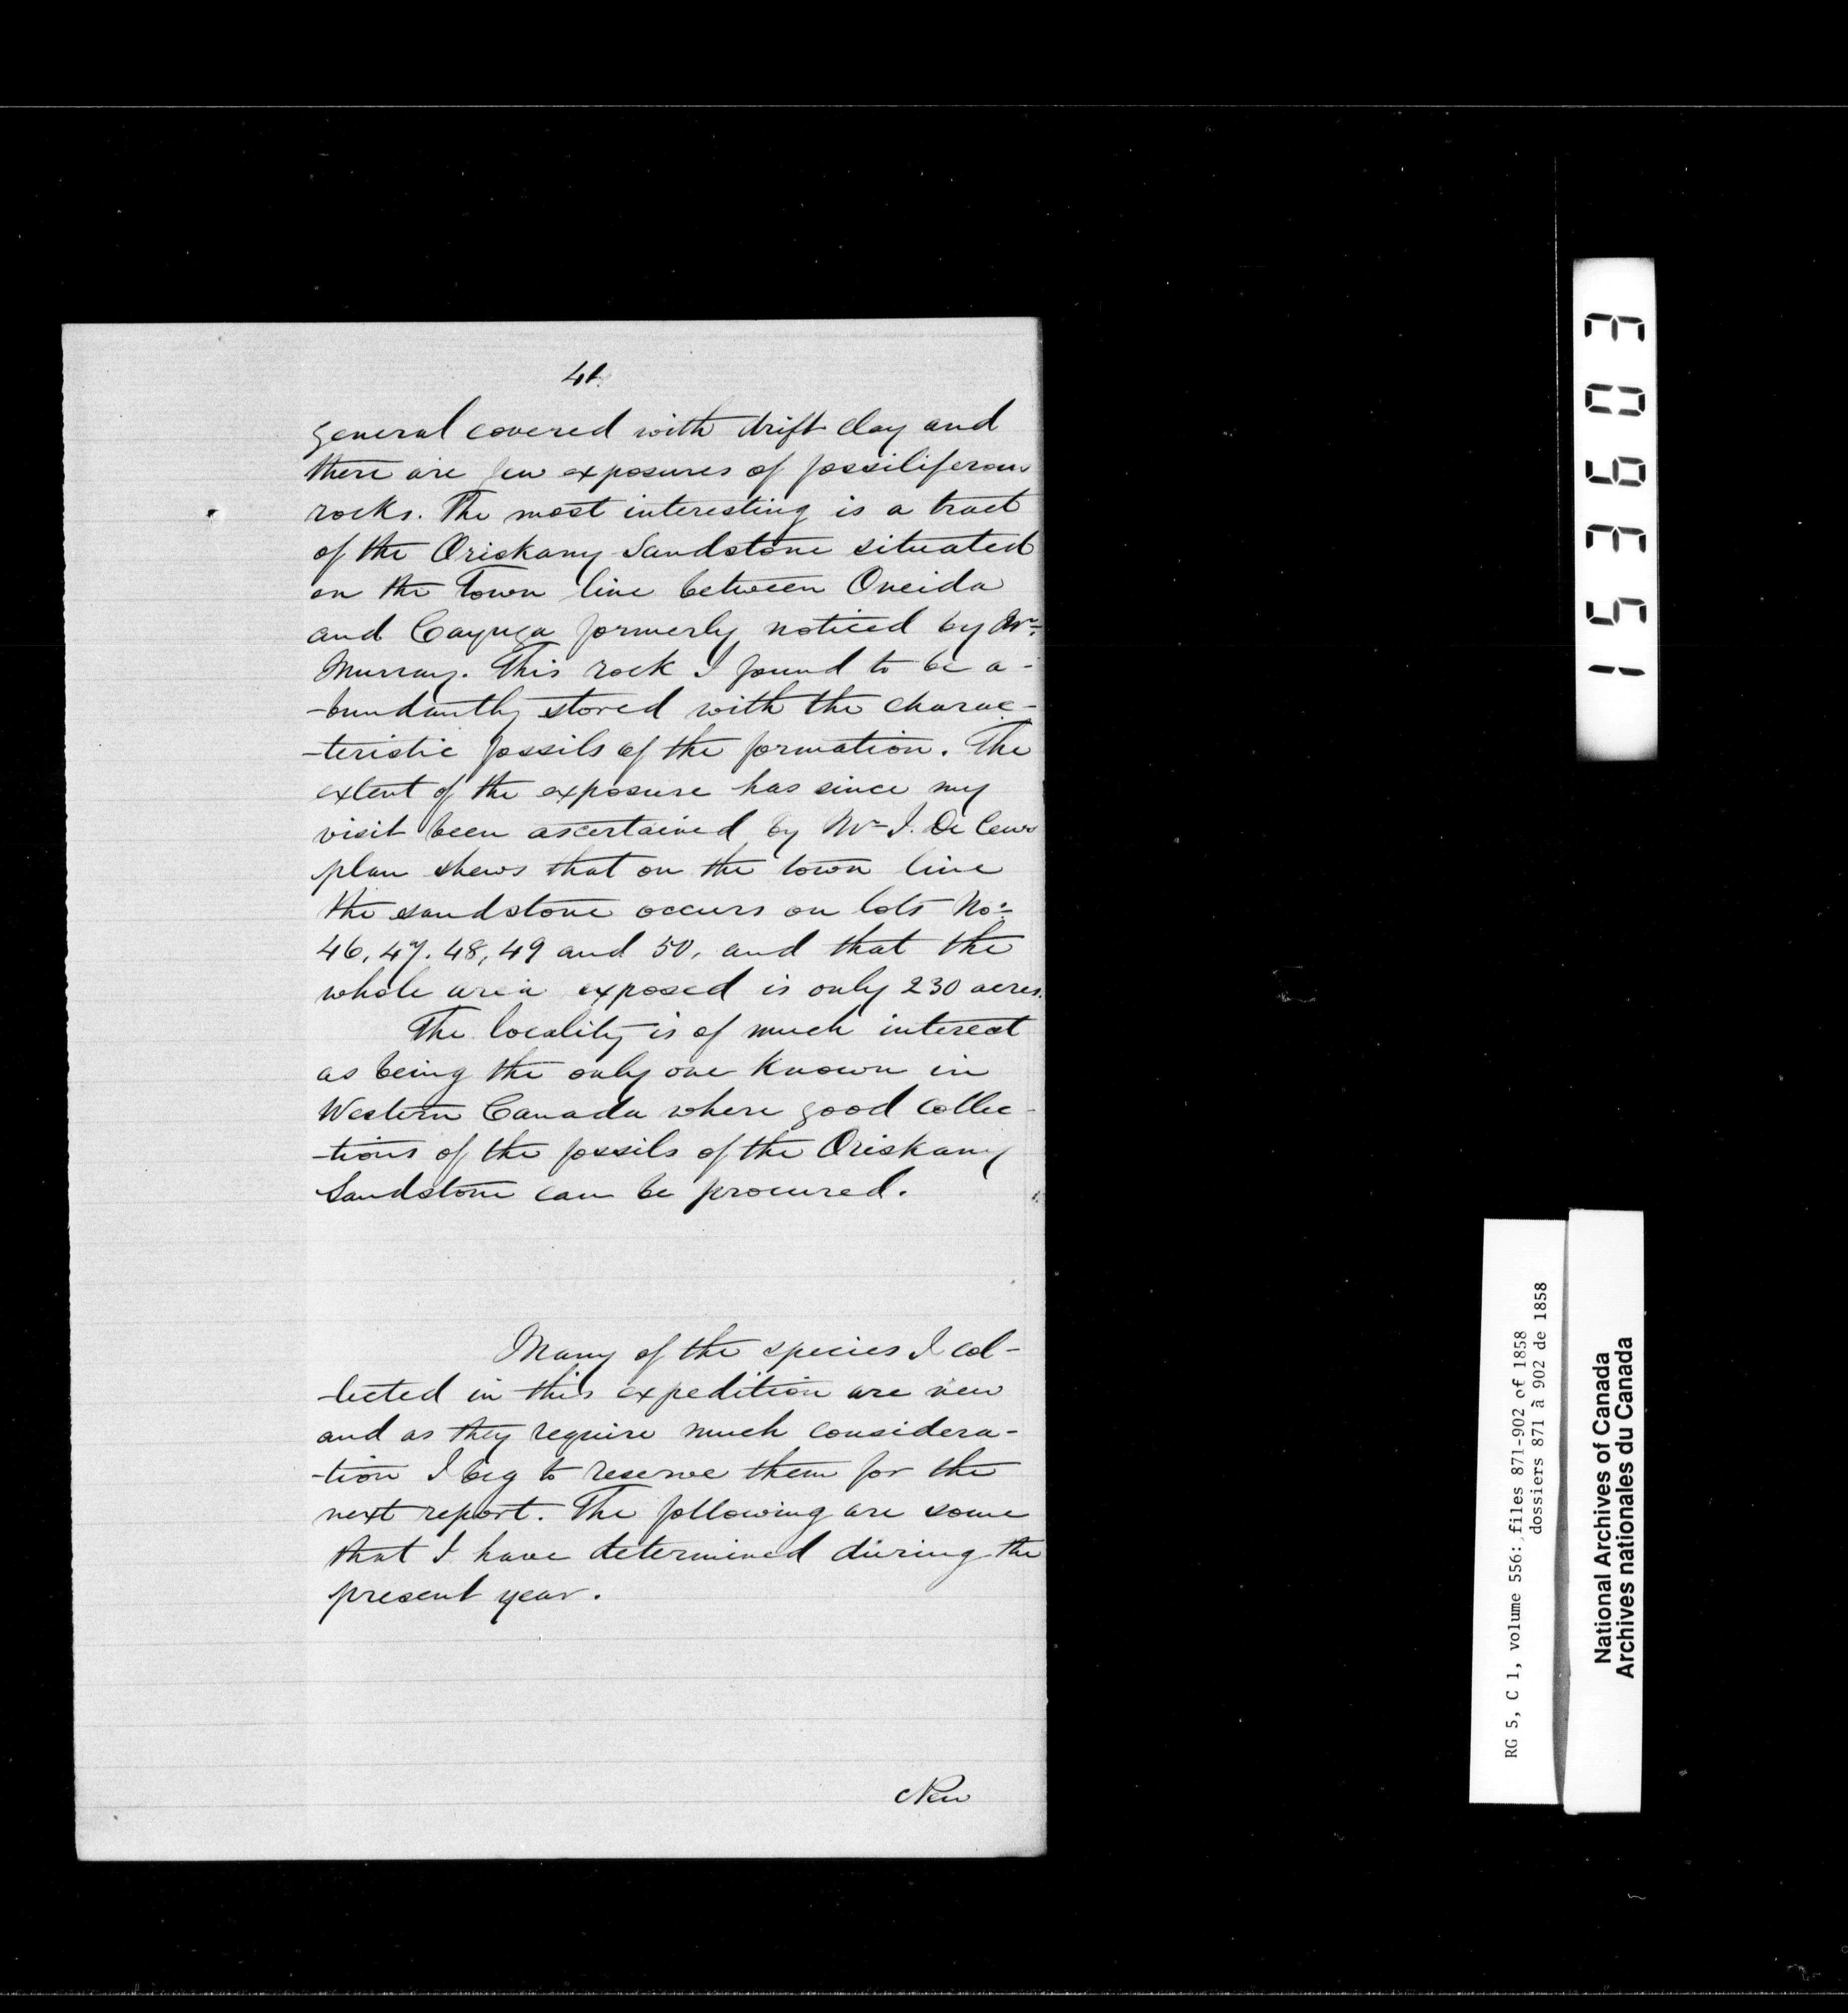 41.
general covered with drift clay and
there are few exposures of fossiliferous
rocks. The most interesting is a tract
of the Oriskany Sandstone situated
on the Town line between Oneida
and Cayuga formerly noticed by Mr.
Murray. This rock I found to be a-
-bundantly stored with the charac-
-teristic fossils of the formation. The
extent of the exposure has since my
visit been ascertained by Mr. J. De Cews
plan shews that on the town line
the sandstone occurs on lots Nos.
46, 47, 48, 49 and 50, and that the
whole area exposed is only 230 acres.
The locality is of much interest
as being the only one known in
Western Canada where good collec-
-tions of the fossils of the Oriskany
Sandstone can be procured.
Many of the species I col-
-lected in this expedition are new
and as they require much considera-
-tion I beg to reserve them for the
next report. The following are some
that I have determined during the
present year.
New
153603
RG 5, C 1, volume 556: files 871-902 of 1858
dossiers 871 à 902 de 1858
National Archives of Canada
Archives nationales du Canada